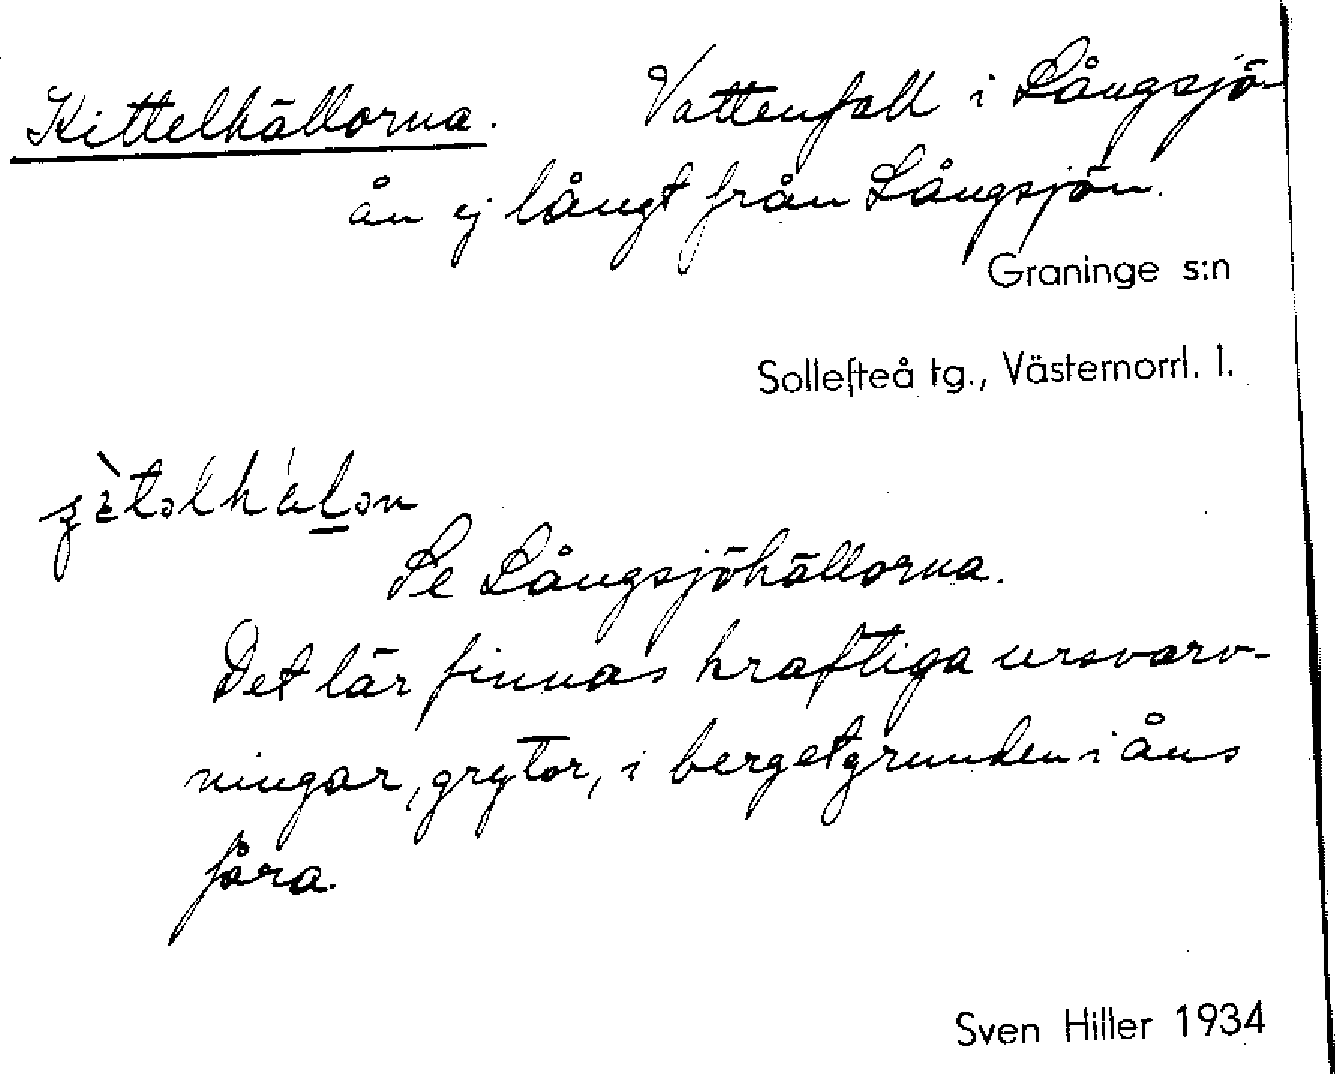 Kittelhällorna. Vattenfall i Långsjö-
ån ej långt från Långsjön.
Graninge s:n
Sollefteå tg., Västernorrl. l.
Se Långsjöhällorna.
Det lär finnas kraftiga ursvarv-
ningar, grytor, i bergetgrunden i åns
fåra.
Sven Hiller 1934